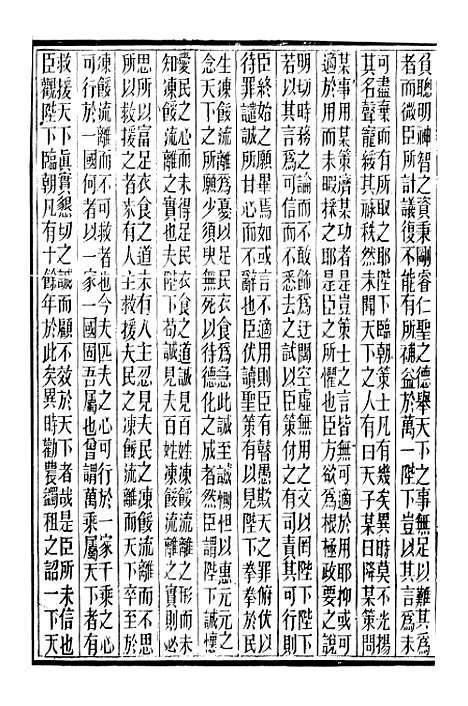 負聰明神智之資秉剛睿仁聖之德舉天下之事無足以難其爲
者而微臣所計議復不能有所補益於萬一陛下豈以其言爲未
可盡棄而有所取之耶陛下臨朝策士凡有幾矣異時莫不光揚
其名聲寵綏其祿秩然未聞天下之人有曰天子某日降某策問
某事用某策濟某功者是豈策士之言皆無可適於用耶抑或可
適於用而未暇採之耶是臣之所懼也臣方欲爲根極政論之說
明切時務之論而不敢飾爲迂闊空虛無用之文以罔陛下陛下
若以其言爲可信而不悉去之試以臣策付之有司責其可行則
臣終始之願畢焉如或言不適用則臣有瞽愚欺天之罪俯伏以
待罪譴誠所甘心而不辭也臣伏讀聖策有曰朕所拳拳於民
生凍餒流離爲憂以足民衣食爲急此誠至誠惻怛以惠元元之
念天下之所願少須臾無死以待德化之成者然臣謂陛下誠懷
愛民之心而未得足民衣食之道誠見百姓凍餒流離之形而未
知凍餒流離之實也夫陛下苟誠見夫百姓凍餒流離之實則必
思所以富足衣食之道未有人主忍見夫民之凍餒流離而不思
所以救援之者未有人主救援夫民之凍餒流離而天下至於
凍餒流離而不可救者也今夫匹夫之心可行於一家千乘之心
可行於一國何者以一家一國固吾屬也曾謂萬乘屬天下之心
救援天下眞實懇切之誠而顧不效於天下者哉是臣所未信也
臣觀陛下臨朝凡有十餘年於此矣異時勸農蠲租之詔一下天